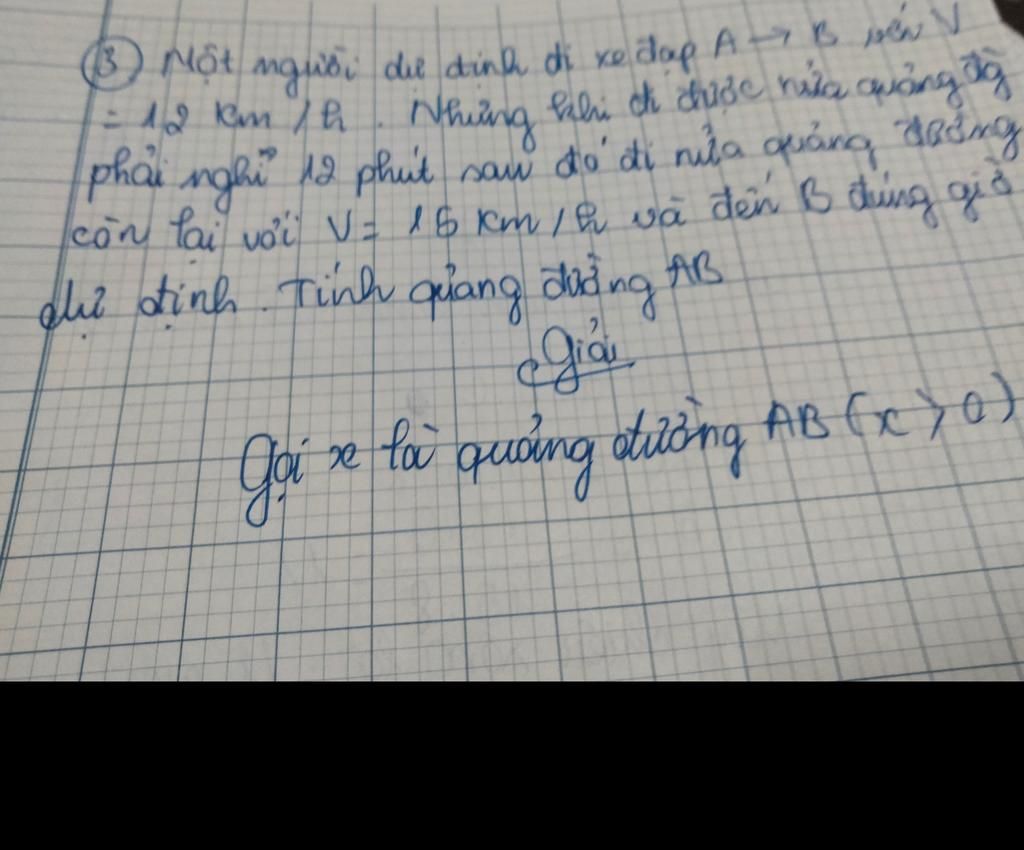 ③ Một người dự định đi xe đạp A → B với V
= 12 km/h. Nhưng khi đi được nửa quảng đg
phải nghỉ 12 phút sau đó đi nửa quảng đường
còn lại với V = 15 km/h và đến B đúng giờ
dự định. Tính quảng đường AB
Giải
Gọi x là quảng đường AB (x > 0)